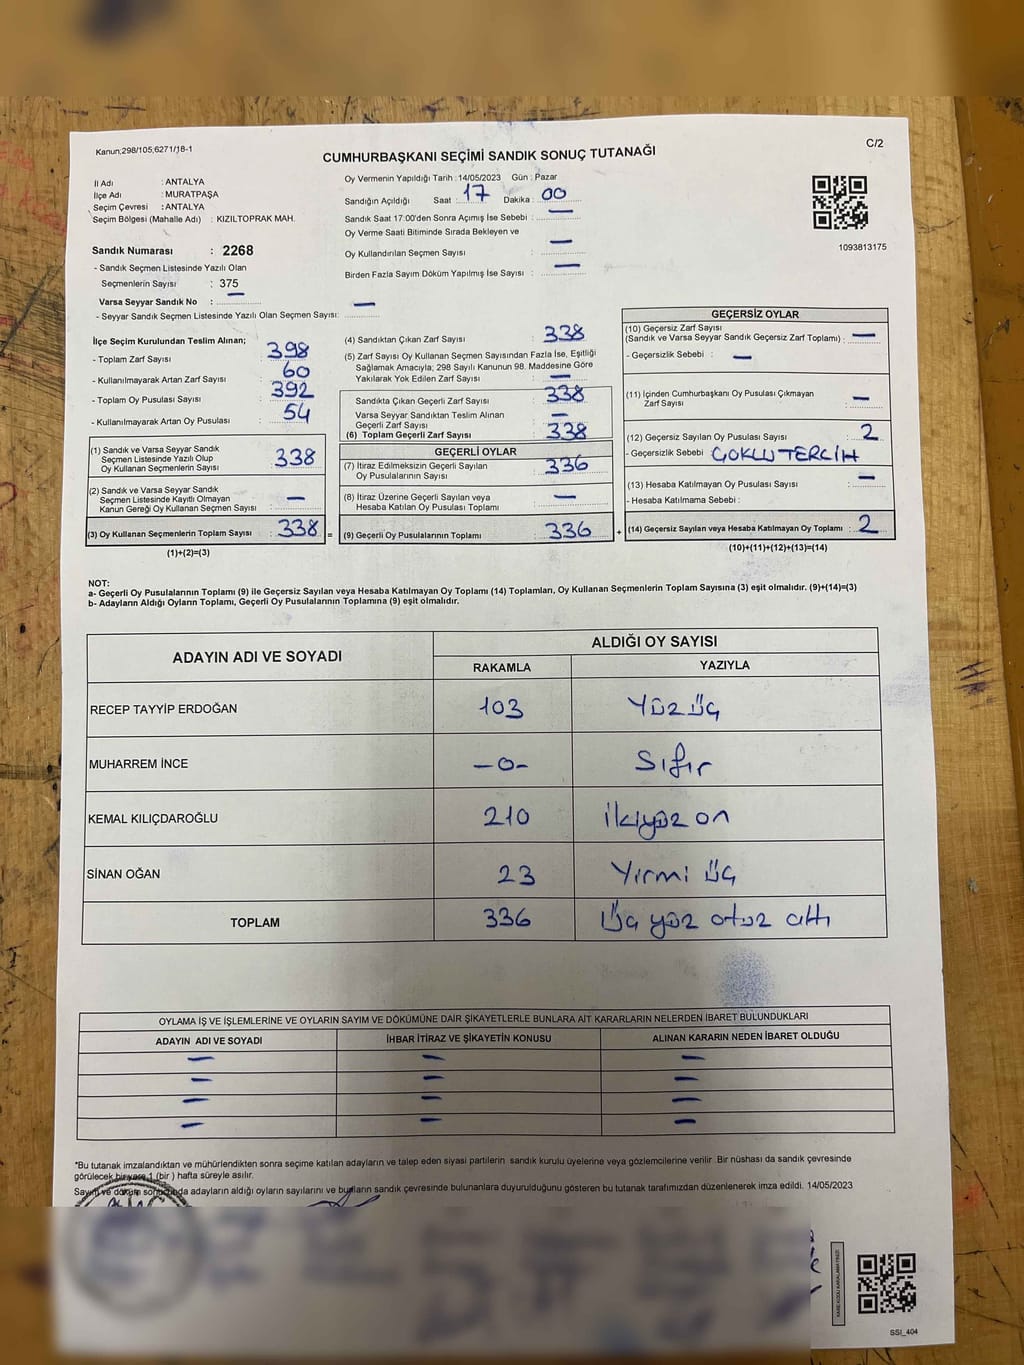 Kanun;298/105,6271/18-1
C/2
CUMHURBAŞKANI SEÇİMİ SANDIK SONUÇ TUTANAĞI
İl Adı : ANTALYA
İlçe Adı : MURATPAŞA
Seçim Çevresi : ANTALYA
Seçim Bölgesi (Mahalle Adı) : KIZILTOPRAK MAH.
Sandık Numarası : 2268
- Sandık Seçmen Listesinde Yazılı Olan
Seçmenlerin Sayısı : 375
Varsa Seyyar Sandık No : —
- Seyyar Sandık Seçmen Listesinde Yazılı Olan Seçmen Sayısı: —
Oy Vermenin Yapıldığı Tarih : 14/05/2023 Gün : Pazar
Sandığın Açıldığı Saat : 17 Dakika : 00
Sandık Saat 17:00'den Sonra Açımış İse Sebebi : —
Oy Verme Saati Bitiminde Sırada Bekleyen ve
Oy Kullandırılan Seçmen Sayısı : —
Birden Fazla Sayım Döküm Yapılmış İse Sayısı : —
1093813175
İlçe Seçim Kurulundan Teslim Alınan;
- Toplam Zarf Sayısı : 398
- Kullanılmayarak Artan Zarf Sayısı : 60
- Toplam Oy Pusulası Sayısı : 392
- Kullanılmayarak Artan Oy Pusulası : 54
(1) Sandık ve Varsa Seyyar Sandık
Seçmen Listesinde Yazılı Olup
Oy Kullanan Seçmenlerin Sayısı : 338
(2) Sandık ve Varsa Seyyar Sandık
Seçmen Listesinde Kayıtlı Olmayan
Kanun Gereği Oy Kullanan Seçmen Sayısı : —
(3) Oy Kullanan Seçmenlerin Toplam Sayısı : 338 =
(1)+(2)=(3)
(4) Sandıktan Çıkan Zarf Sayısı : 338
(5) Zarf Sayısı Oy Kullanan Seçmen Sayısından Fazla İse, Eşitliği
Sağlamak Amacıyla; 298 Sayılı Kanunun 98. Maddesine Göre
Yakılarak Yok Edilen Zarf Sayısı : —
Sandıkta Çıkan Geçerli Zarf Sayısı : 338
Varsa Seyyar Sandıktan Teslim Alınan
Geçerli Zarf Sayısı : —
(6) Toplam Geçerli Zarf Sayısı : 338
GEÇERLİ OYLAR
(7) İtiraz Edilmeksizin Geçerli Sayılan
Oy Pusulasının Sayısı : 336
(8) İtiraz Üzerine Geçerli Sayılan veya
Hesaba Katılan Oy Pusulası Toplamı : —
(9) Geçerli Oy Pusulalarının Toplamı : 336 +
GEÇERSİZ OYLAR
(10) Geçersiz Zarf Sayısı
(Sandık ve Varsa Seyyar Sandık Geçersiz Zarf Toplamı) : —
- Geçersizlik Sebebi : —
(11) İçinden Cumhurbaşkanı Oy Pusulası Çıkmayan
Zarf Sayısı : —
(12) Geçersiz Sayılan Oy Pusulası Sayısı : 2
- Geçersizlik Sebebi : ÇOKLU TERCİH
(13) Hesaba Katılmayan Oy Pusulası Sayısı : —
- Hesaba Katılmama Sebebi :
(14) Geçersiz Sayılan veya Hesaba Katılmayan Oy Toplamı : 2
(10)+(11)+(12)+(13)=(14)
NOT:
a- Geçerli Oy Pusulalarının Toplamı (9) ile Geçersiz Sayılan veya Hesaba Katılmayan Oy Toplamı (14) Toplamları, Oy Kullanan Seçmenlerin Toplam Sayısına (3) eşit olmalıdır. (9)+(14)=(3)
b- Adayların Aldığı Oyların Toplamı, Geçerli Oy Pusulalarının Toplamına (9) eşit olmalıdır.
ADAYIN ADI VE SOYADI ALDIĞI OY SAYISI
RAKAMLA YAZIYLA
RECEP TAYYİP ERDOĞAN 103 Yüz üç
MUHARREM İNCE -0- Sıfır
KEMAL KILIÇDAROĞLU 210 ikiyüz on
SİNAN OĞAN 23 Yirmi üç
TOPLAM 336 Üç yüz otuz altı
OYLAMA İŞ VE İŞLEMLERİNE VE OYLARIN SAYIM VE DÖKÜMÜNE DAİR ŞİKAYETLERLE BUNLARA AİT KARARLARIN NELERDEN İBARET BULUNDUKLARI
ADAYIN ADI VE SOYADI İHBAR İTİRAZ VE ŞİKAYETİN KONUSU ALINAN KARARIN NEDEN İBARET OLDUĞU
— — —
— — —
— — —
— — —
*Bu tutanak imzalandıktan ve mühürlendikten sonra seçime katılan adayların ve talep eden siyasi partilerin sandık kurulu üyelerine veya gözlemcilerine verilir. Bir nüshası da sandık çevresinde
görülecek bir yere 1 (bir ) hafta süreyle asılır.
Sayım ve döküm sonucunda adayların aldığı oyların sayılarını ve bunların sandık çevresinde bulunanlara duyurulduğunu gösteren bu tutanak tarafımızdan düzenlenerek imza edildi. 14/05/2023
SSI_404